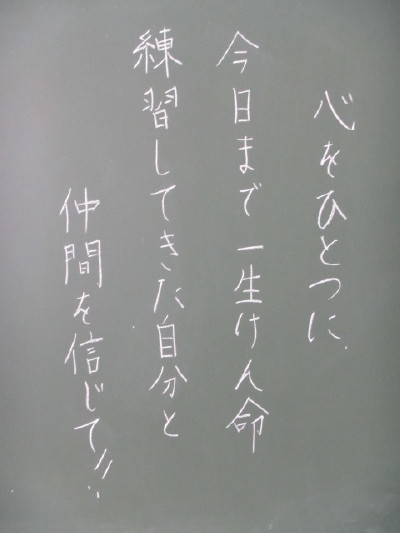 心をひとつに
今日まで一生けん命
練習してきた自分と
仲間を信じて!!